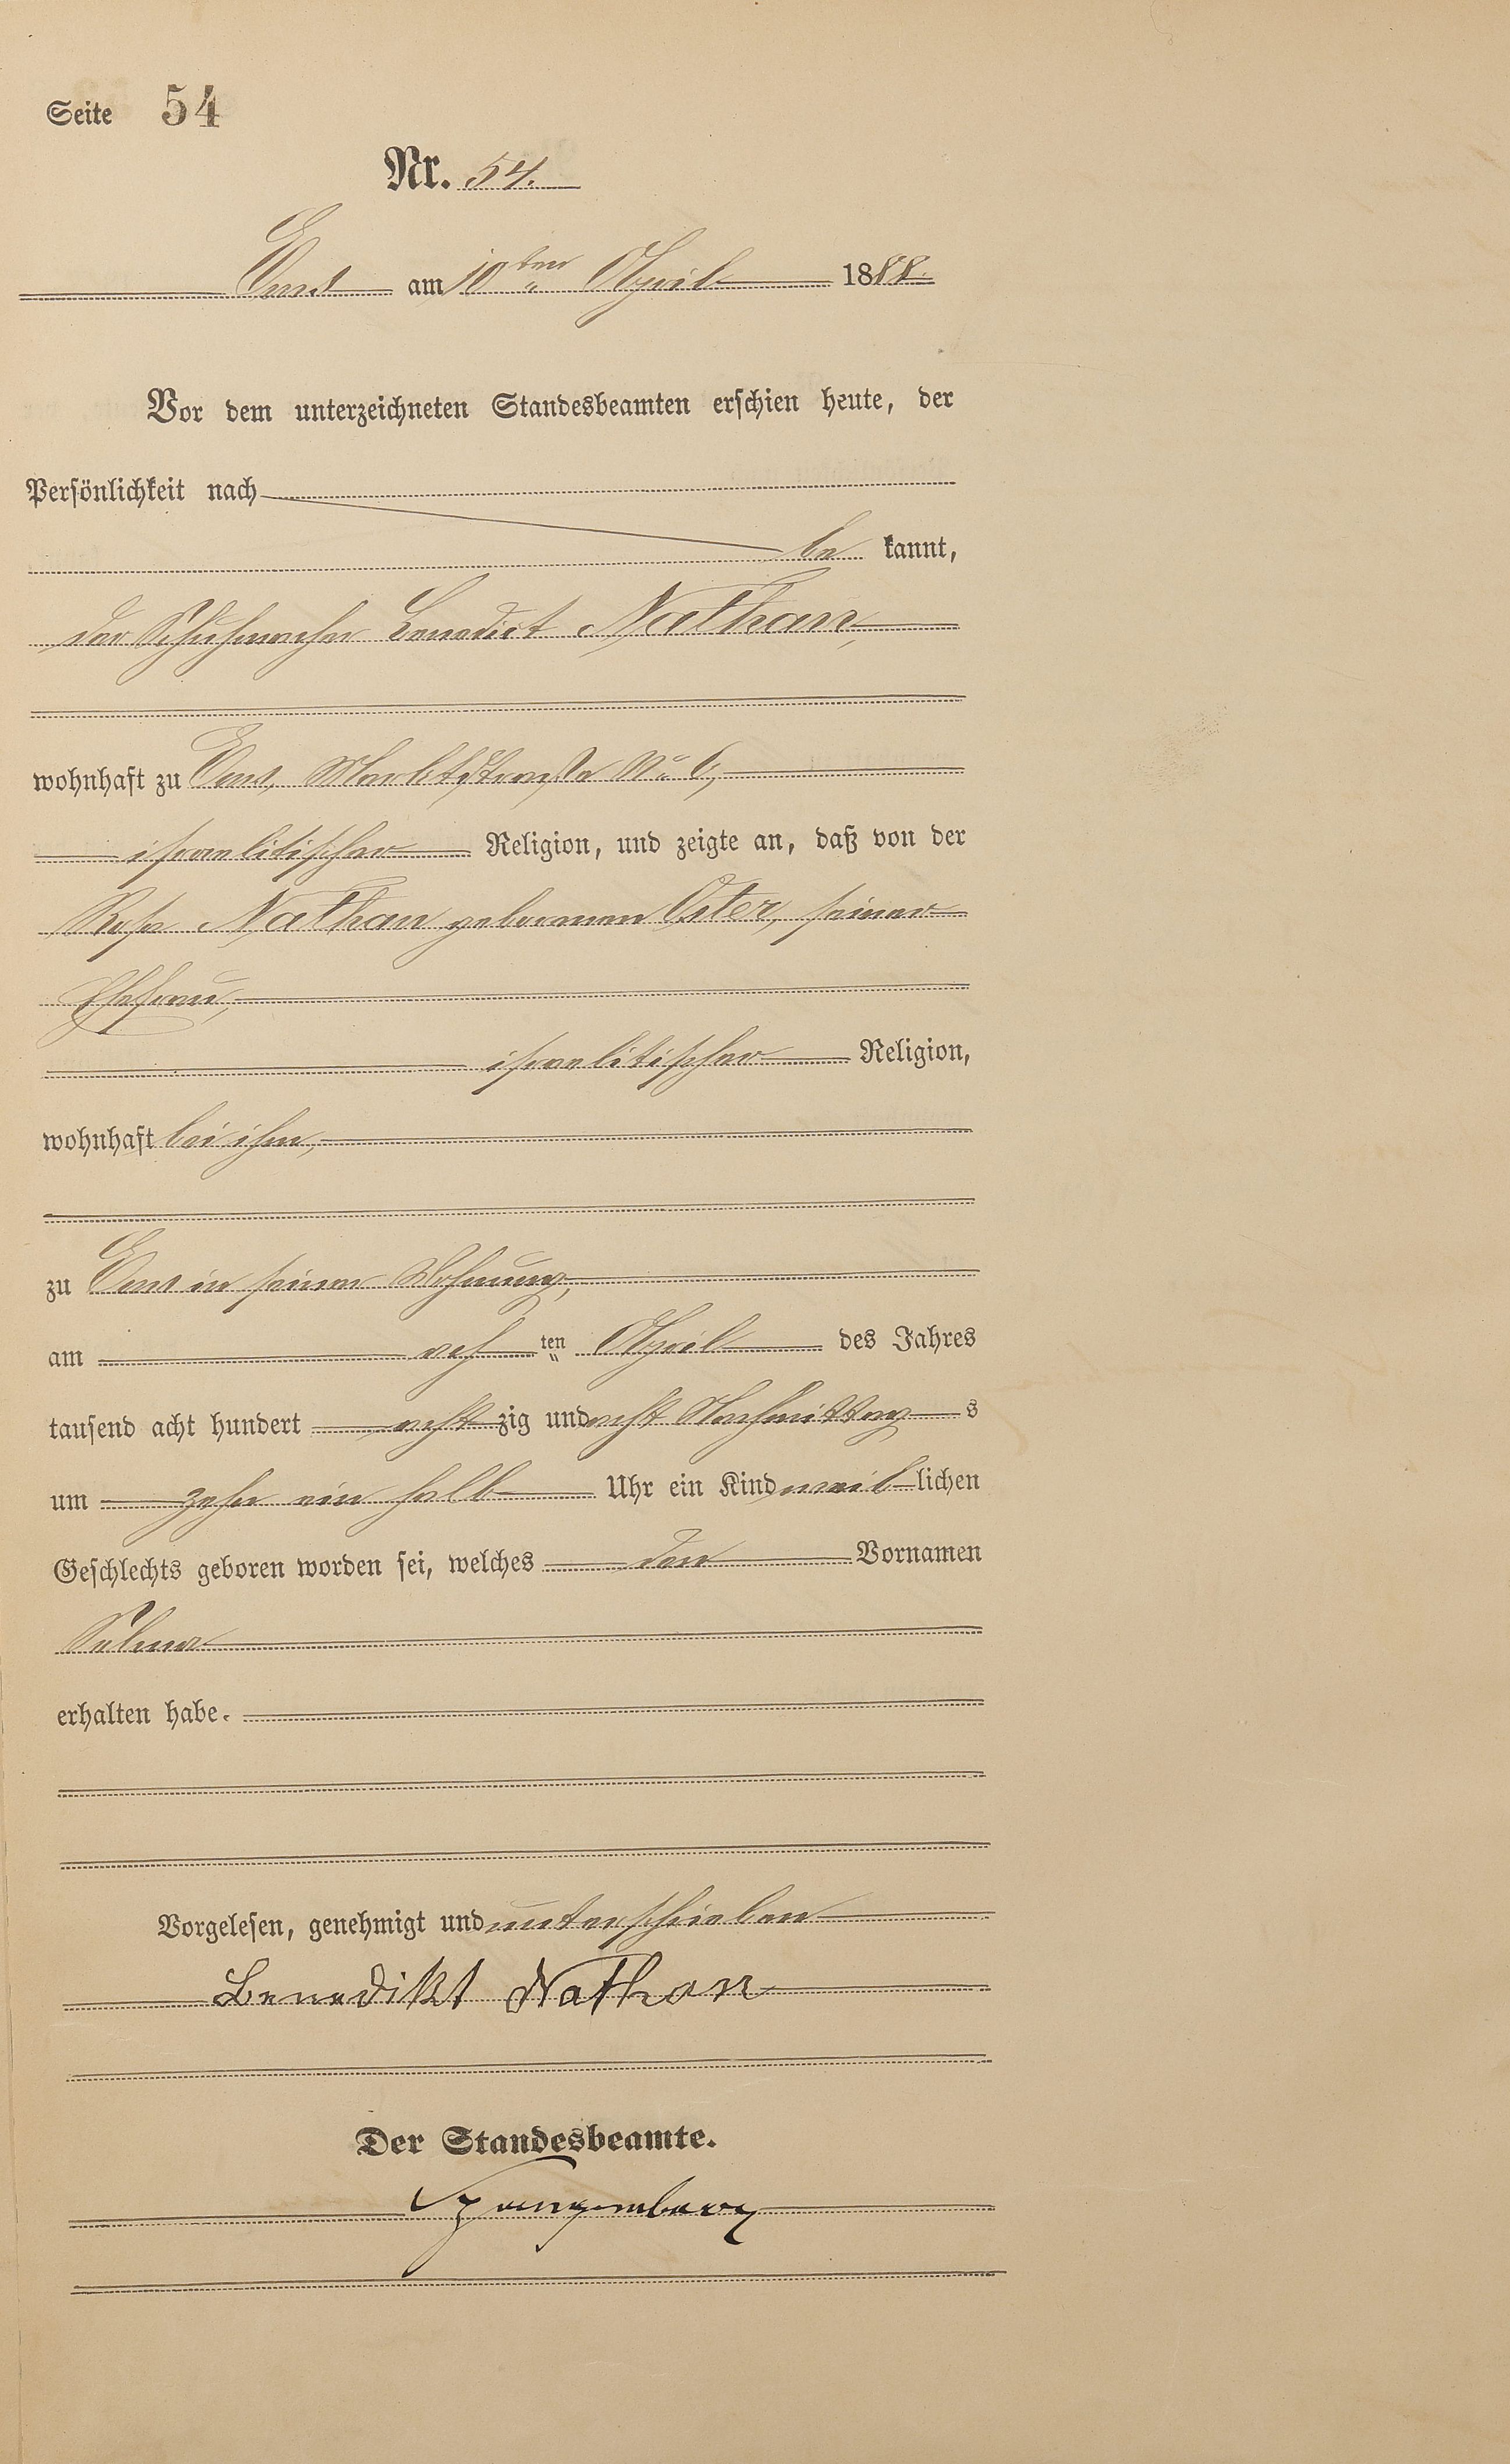 Seite 54
Nr. 54.
Ems am 10ten April 1888.
Vor dem unterzeichneten Standesbeamten erschien heute, der
Persönlichkeit nach
be kannt,
der Schuhmacher Benedict Nathan,
wohnhaft zu Ems, Marktstraße No 6,
israelitischer Religion, und zeigte an, daß von der
Rosa Nathan geborenen Oster, seiner
Ehefrau,
israelitischer Religion,
wohnhaft bei ihm,
zu Ems in seiner Wohnung,
am ach ten April des Jahres
tausend acht hundert acht zig und acht Nachmittag s
um zehn ein halb Uhr ein Kind weib lichen
Geschlechts geboren worden sei, welches den Vornamen
Selma
erhalten habe.
Vorgelesen, genehmigt und unterschrieben
Benedikt Nathan
Der Standesbeamte.
Spangenberg